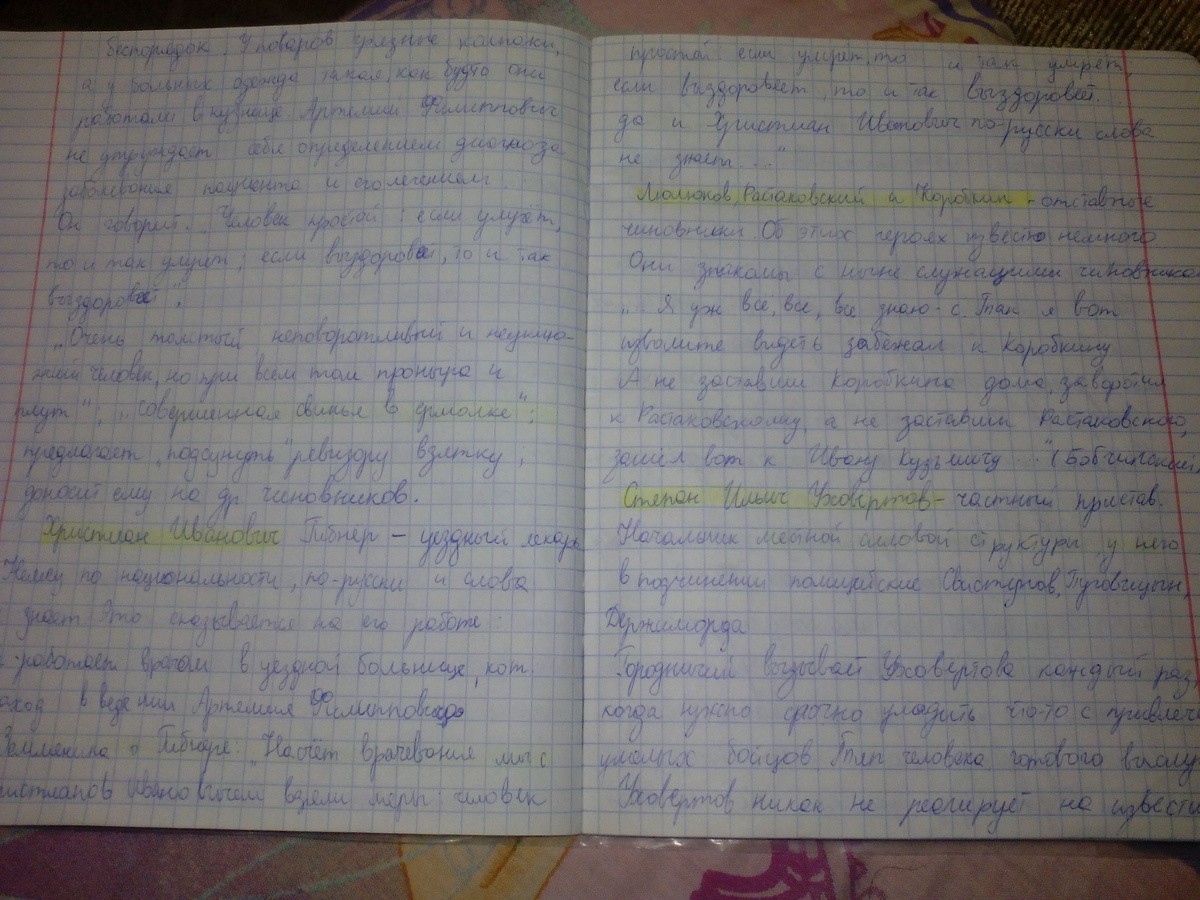 беспорядок. У поваров грязные колпаки,
а у больных одежда такая, как будто они
работали в кузнице. Артемий Филиппович
не утруждает себя определением диагноза
заболевания пациента и его лечением
Он говорит: "Человек простой: если умрёт,
то и так умрет; если выздоровеет, то и так
выздоровеет".
"Очень толстый неповоротливый и неуклю-
жий человек, но при всем том проныра и
плут"; "совершенная свинья в ермолке";
предлагает "подсунуть" ревизору взятку,
доносит ему на др чиновников.
Христиан Иванович Гибнер – уездный лекарь
Немец по национальности, по-русски и слова
знает Это сказывается на его работе:
работает врачом в уездной больнице, кот.
в ведении Артемия Филипповича
Земляника о Гибнере: "Насчёт врачевания мы с
Ивановичем взяли меры: человек
простой если умрет, то и так умрет,
если выздоровеет, то и так выздоровеет.
да и Христиан Иванович по-русски слова
не знает ..."
Люлюков, Растаковский и Коробкин - отставные
чиновники. Об этих героях известно немного
Они знакомы с ныне служащими чиновника
"Я уж все, все, все знаю-с. Так я вот
изволите видеть забежал к Коробкину
А не заставши Коробкина дома, заворотил
к Растаковскому, а не заставши Растаковского,
зашел вот к Ивану Кузьмичу ..." (Бобчинский)
Степан Ильич Уховертов – частный пристав.
Начальник местной силовой структуры, у него
в подчинении полицейские Свистунов, Пуговицын,
Держиморда
Городничий вызывает Уховертова каждый раз,
когда нужно срочно уладить что-то с привлече
умелых бойцов. Тип человека готового выслу
Уховертов никак не реагирует на извести